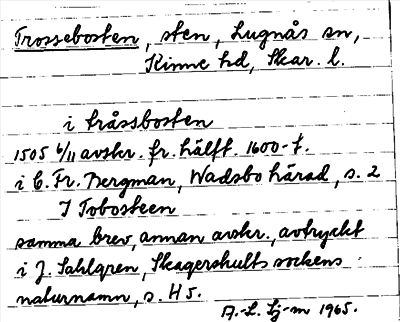 Trossebosten, sten, Lugnås sn,
Kinne hd, Skar. l.
i tråssbosten
1505 6/11 avskr. fr. hälft. 1600-t.
i C. Fr. Bergman, Wadsbo härad, s. 2
I Tobosteen
samma brev, annan avskr., avtryckt
i J. Sahlgren, Skagershults sockens
naturnamn, s. 45.
A.-L. Sj-m 1965.